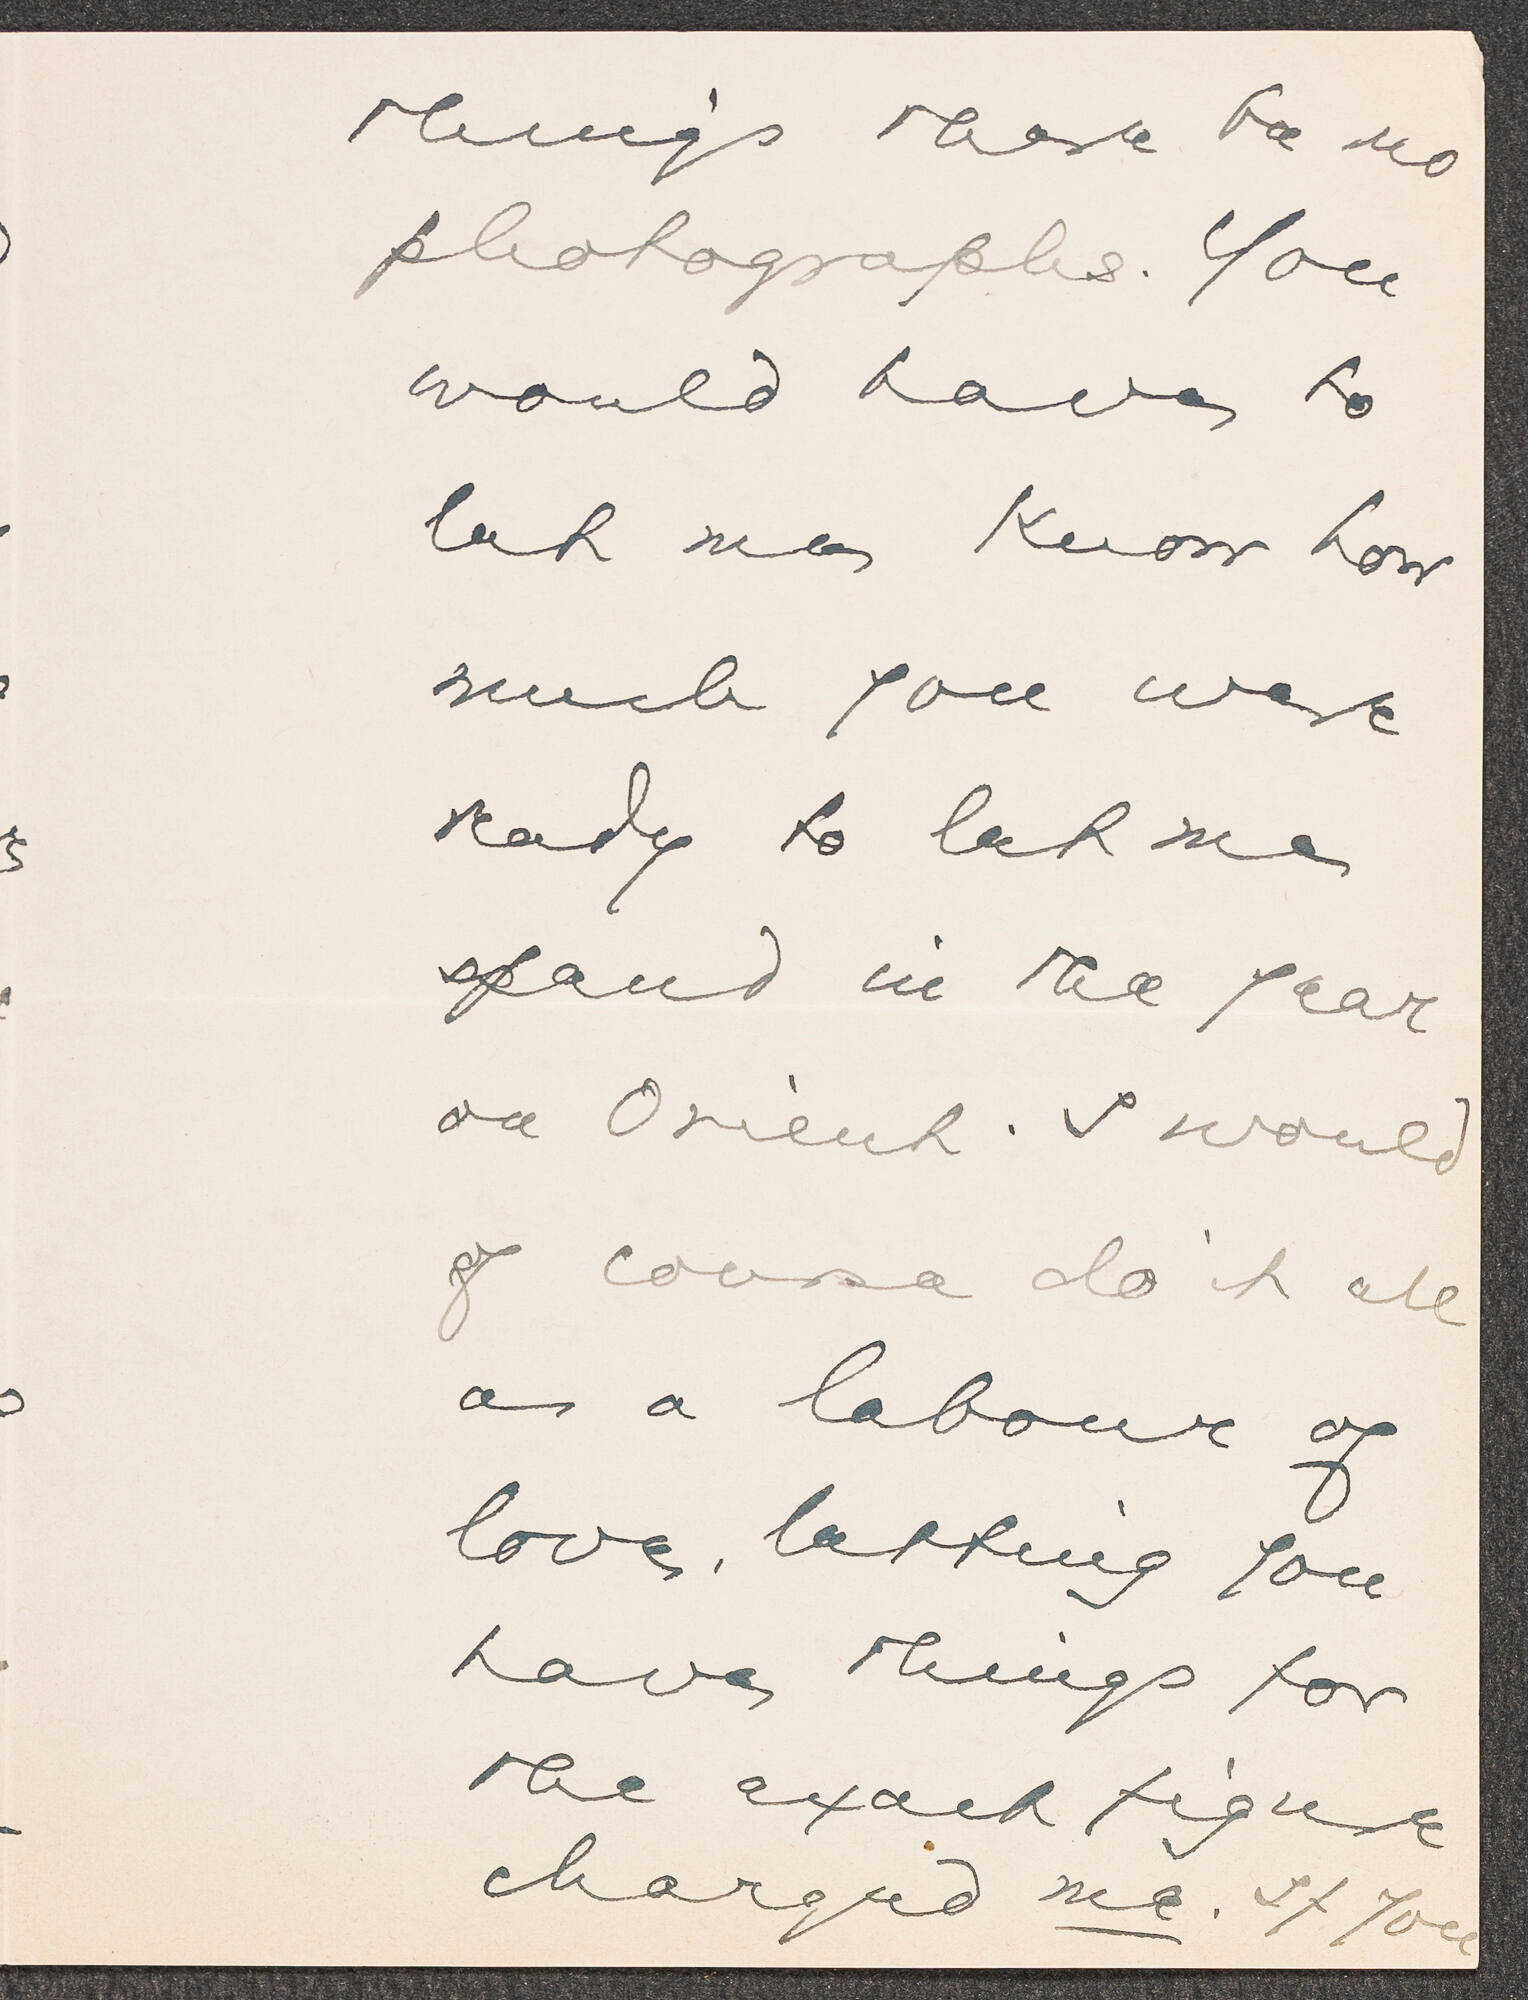 things there be no
photographs. You
would have to
let me know how
much you were
ready to let me
spend in the year
on Orient. I would
of course do it all
as a labour of
love, letting you
have things for
the exact figure
charged me. If you